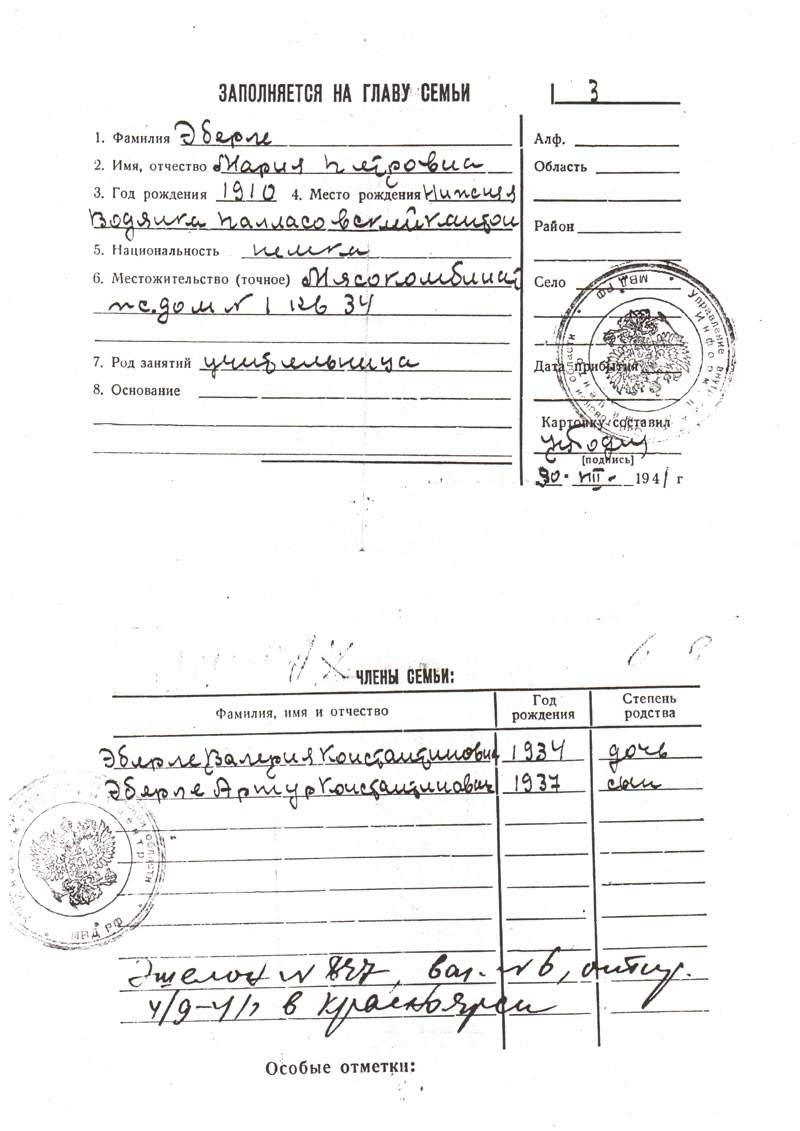 ЗАПОЛНЯЕТСЯ НА ГЛАВУ СЕМЬИ
3
1. Фамилия Эберле
2. Имя, отчество Мария Петровна
3. Год рождения 1910 4. Место рождения Нижняя
Водянка Палласовский кантон
5. Национальность немка
6. Местожительство (точное) Мясокомбинат
дом N 1 кв 34
7. Род занятий учительница
8. Основание
Алф.
Область
Район
Село
Дата прибытия
Карточку составил
[подпись]
30. VIII. 1941 г
МВД РФ
Управление внут
ЧЛЕНЫ СЕМЬИ:
Фамилия, имя и отчество
Год рождения
Степень родства
Эберле Валерия Константиновна 1934 дочь
Эберле Артур Константинович 1937 сын
МВД РФ
Эшелон N 837, ваг. N 6,
в Красноярск
Особые отметки: